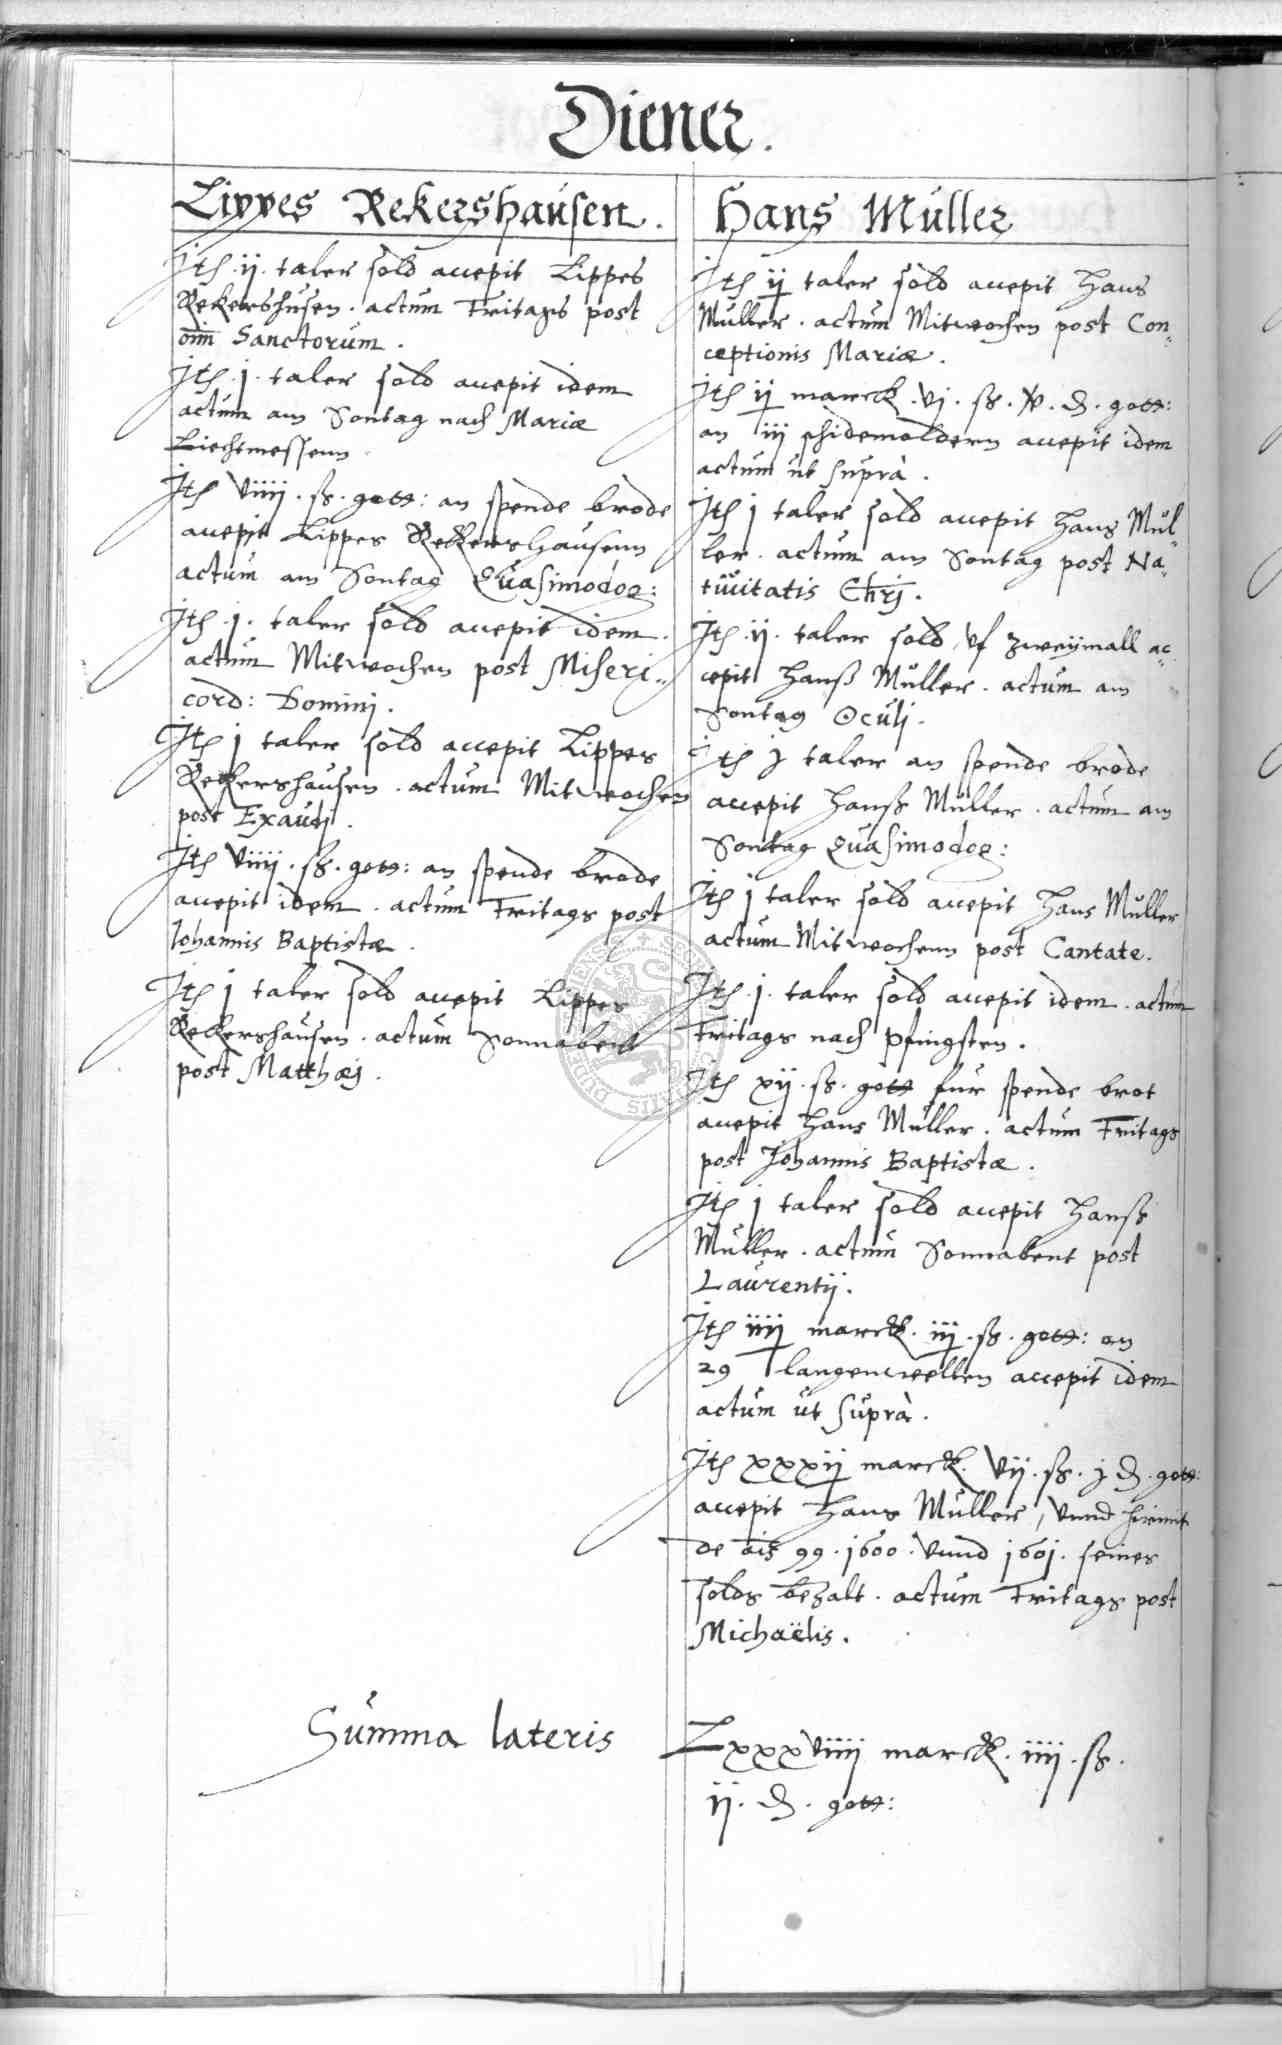 Diener.
Lippes Rekershausen.
Ith .ij. taler sold accepit Lippes
Rekershusen . actum Fritags post
oim Sanctorum .
Ith .j. taler sold accepit idem
actum am Sontag nach Mariæ
Liechtmessenn .
Ith viiij . ß . gott: an spende brode
accepit Lippes Reckershausenn
actum am Sontag Quasimodog:
Ith .j. taler sold accepit idem .
actum Mitwochen post Miseri„
cord: Dominj .
Ith j taler sold accepit Lippes
Reckershausen . actum Mitwochen
post Exaudj .
Ith viiij . ß . gott: an spende brode
accepit idem . actum Fritags post
Johannis Baptistæ .
Ith j taler sold accepit Lippes
Reckershausen . actum Sonnabent
post Matthæj .
Hans Muller
Ith ij taler sold accepit Hans
Muller . actum Mitwochen post Con„
ceptionis Mariæ .
Ith ij marck . vj . ß . iv . d . gott:
an iij schidemoldern accepit idem
actum ut suprà .
Ith j taler sold accepit Hans Mul„
ler . actum am Sontag post Na„
tiuitatis Chrj .
Ith .ij. taler sold vf zweymall ac„
cepit Hanß Muller . actum am
Sontag Oculj .
Ith j taler an spende brode
accepit Hanß Muller . actum am
Sontag Quasimodog:
Ith j taler sold accepit Hans Muller
actum Mitwochenn post Cantate .
Ith .j. taler sold accepit idem . actum
Fritags nach Pfingsten .
Ith xij . ß . gott fur spende brot
accepit Hans Muller . actum Fritags
post Johannis Baptistæ .
Ith j taler sold accepit Hanß
Muller . actum Sonnabent post
Laurentij .
Ith iiij marck . iij . ß . gott: an
29 langenwellen accepit idem
actum ut suprà .
Ith xxxij marck . vij . ß . j d . gott:
accepit Hans Muller, vnnd hirmit
de ais 99 . 1600 . vnnd 1601 . seines
solds bezalt . actum Fritags post
Michaëlis .
Summa lateris
Lxxxviiij marck . iiij . ß .
ij . d . gott: